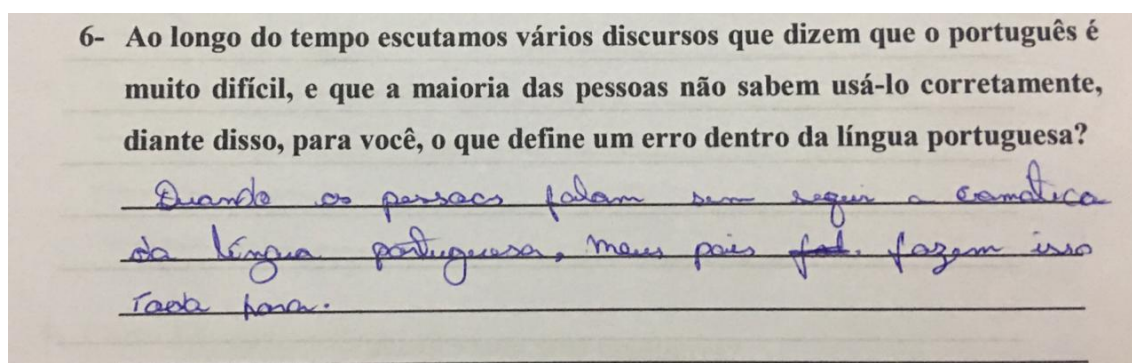 6- Ao longo do tempo escutamos vários discursos que dizem que o português é
muito difícil, e que a maioria das pessoas não sabem usá-lo corretamente,
diante disso, para você, o que define um erro dentro da língua portuguesa?
Quando as pessoas falam sem seguir a
da língua portuguesa, meus pais fazem isso
Toda hora.